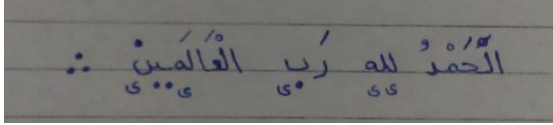 الَّحَمْدُ لله رَب الْعَالَمَين ∴